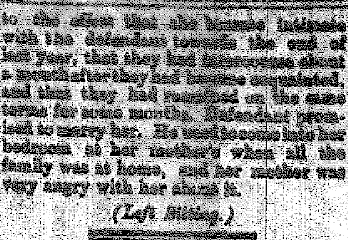 to the effect that she became intimate
with the defendant towards the end of
last year, that they had intercourse about
a month after they had become acquainted,
and that they had remained on the same
terms for some months. Defendant prom-
ised to marry her. He used to come into her
bedroom at her mother's when all the
family was at home, and her mother was
very angry with her about it.
(Left Sitting.)